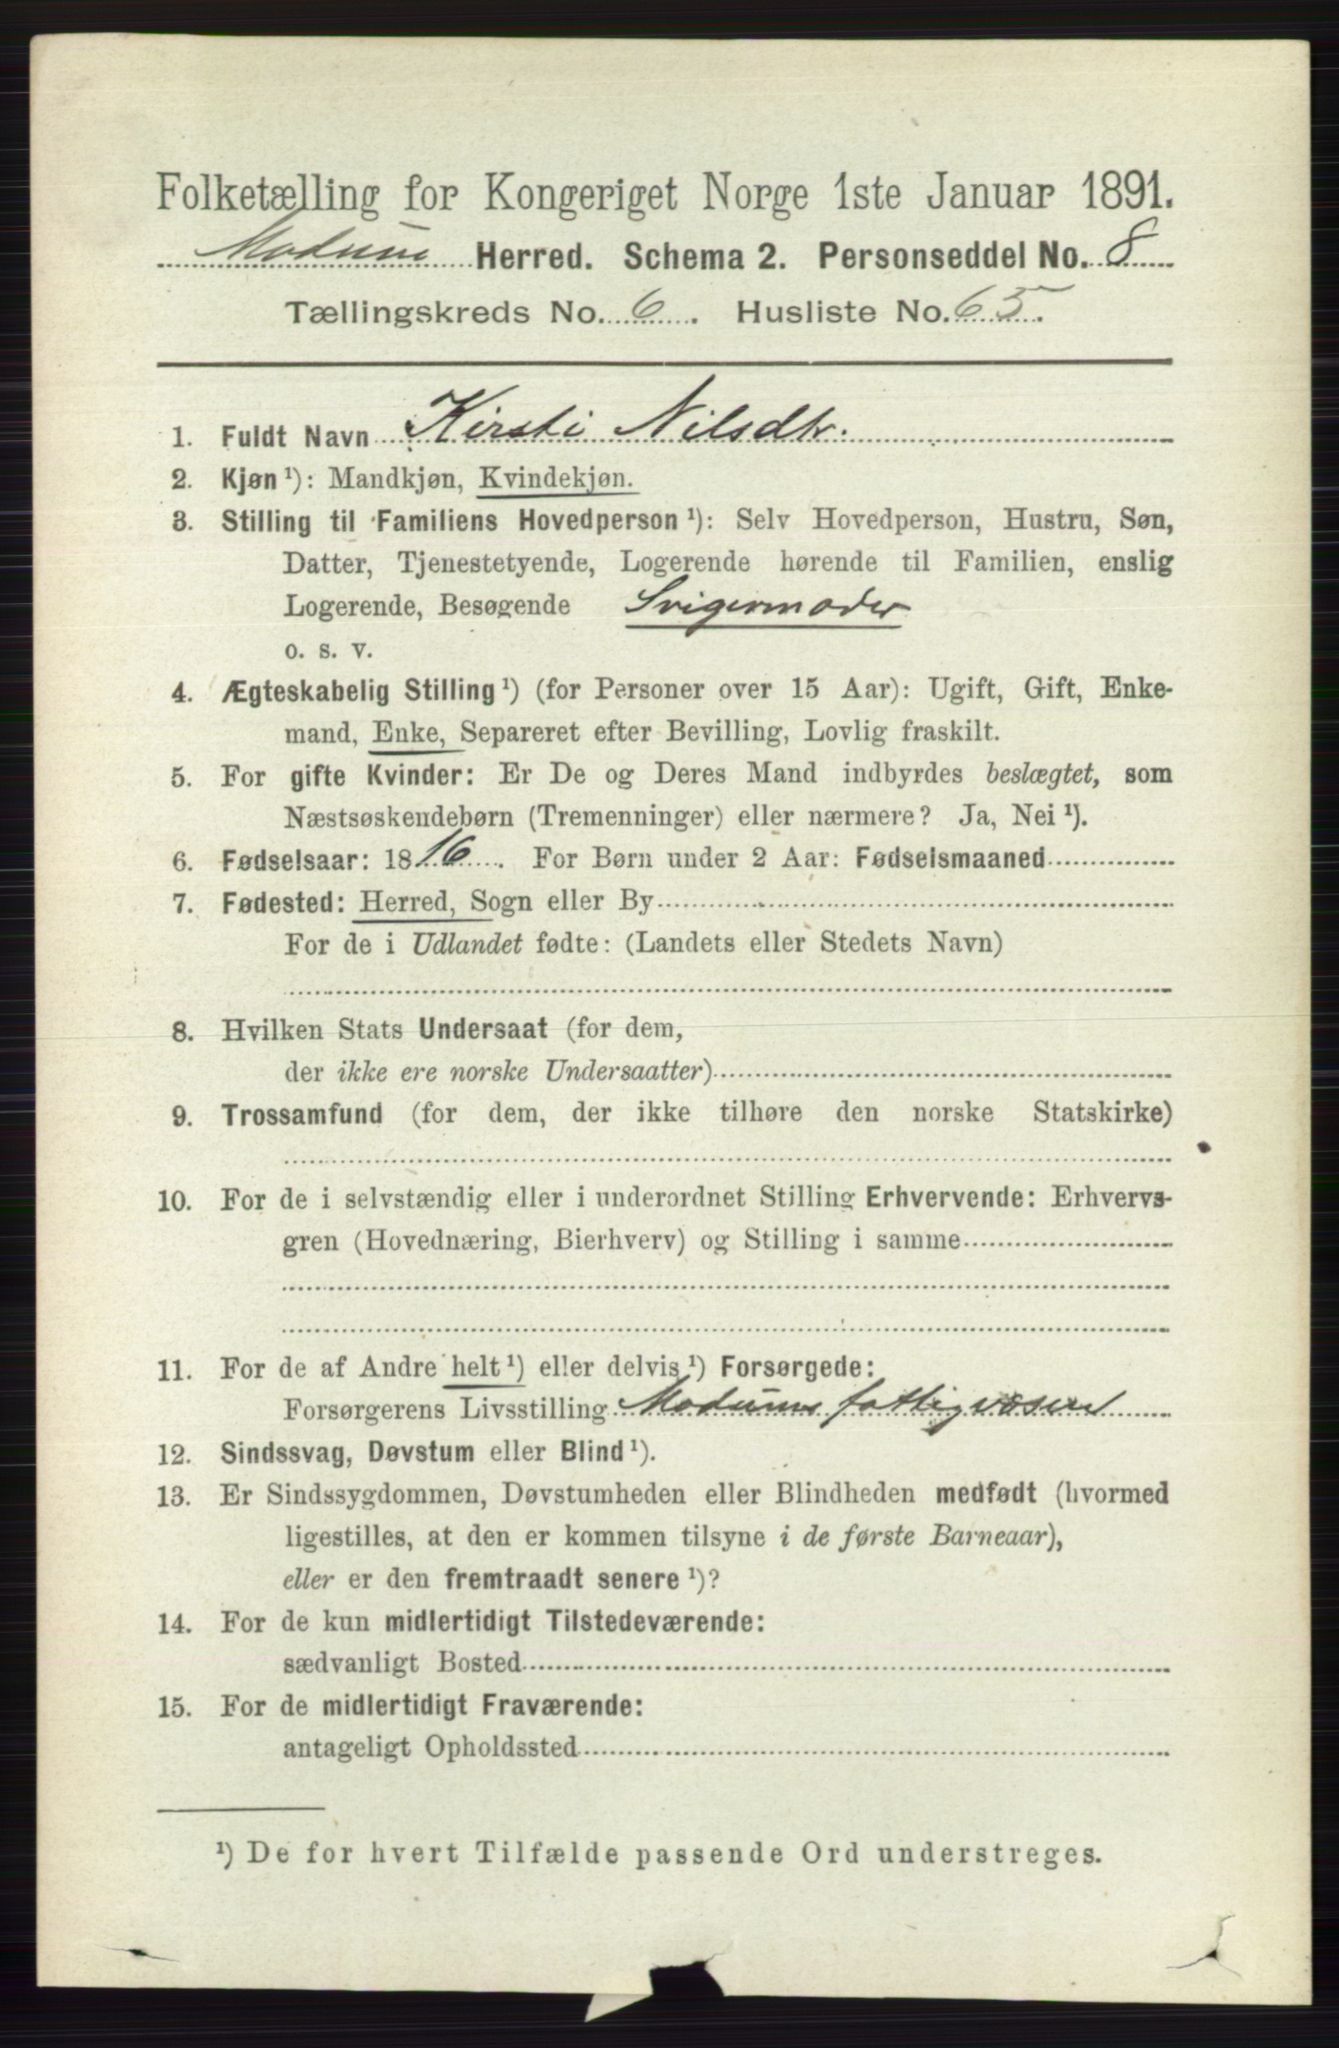 Folketælling for Kongeriget Norge 1ste Januar 1891.
Modum Herred. Schema 2. Personseddel No. 8
Tællingskreds No. 6. Husliste No. 65.
1. Fuldt Navn Kirsti Nilsdtr.
2. Kjøn ¹): Mandkjøn, Kvindekjøn.
3. Stilling til Familiens Hovedperson ¹): Selv Hovedperson, Hustru, Søn,
Datter, Tjenestetyende, Logerende hørende til Familien, enslig
Logerende, Besøgende Svigermoder
o. s. v.
4. Ægteskabelig Stilling ¹) (for Personer over 15 Aar): Ugift, Gift, Enke-
mand, Enke, Separeret efter Bevilling, Lovlig fraskilt.
5. For gifte Kvinder: Er De og Deres Mand indbyrdes beslægtet, som
Næstsøskendebørn (Tremenninger) eller nærmere? Ja, Nei ¹).
6. Fødselsaar: 1816. For Børn under 2 Aar: Fødselsmaaned
7. Fødested: Herred, Sogn eller By
For de i Udlandet fødte: (Landets eller Stedets Navn)
8. Hvilken Stats Undersaat (for dem,
der ikke ere norske Undersaatter)
9. Trossamfund (for dem, der ikke tilhøre den norske Statskirke)
10. For de i selvstændig eller i underordnet Stilling Erhvervende: Erhvervs-
gren (Hovednæring, Bierhverv) og Stilling i samme
11. For de af Andre helt ¹) eller delvis ¹) Forsørgede:
Forsørgerens Livsstilling Modums fattigvæsen
12. Sindssvag, Døvstum eller Blind ¹).
13. Er Sindssygdommen, Døvstumheden eller Blindheden medfødt (hvormed
ligestilles, at den er kommen tilsyne i de første Barneaar),
eller er den fremtraadt senere ¹)?
14. For de kun midlertidigt Tilstedeværende:
sædvanligt Bosted
15. For de midlertidigt Fraværende:
antageligt Opholdssted
¹) De for hvert Tilfælde passende Ord understreges.